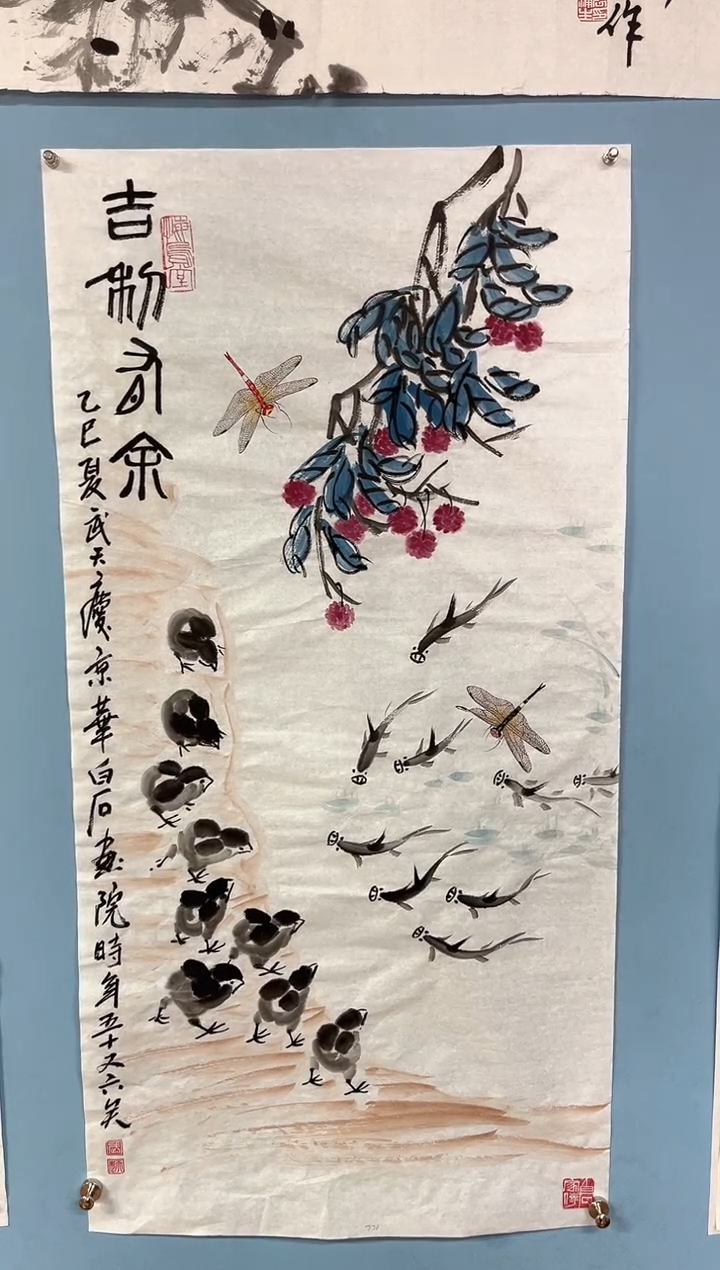 吉利有余
乙巳夏武天庆京華白石畫院時年五十又六矣
作